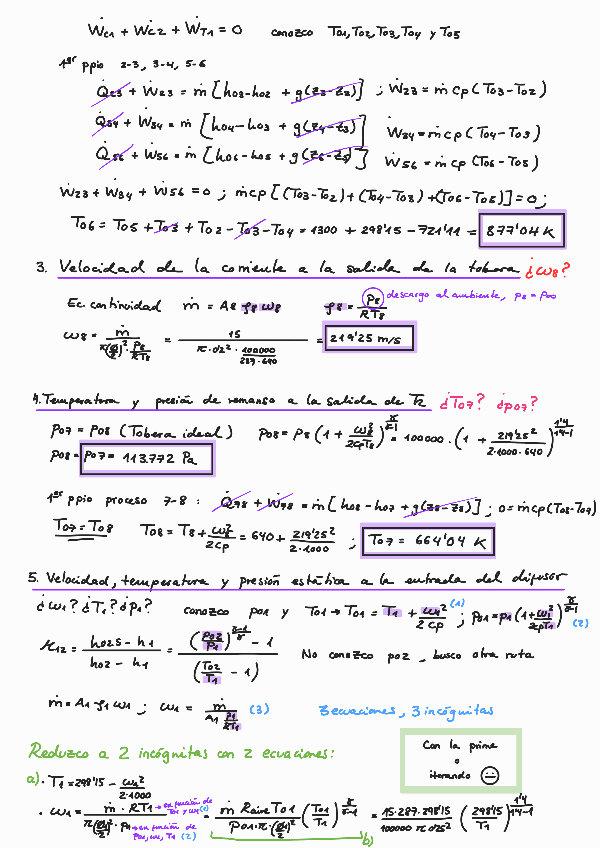 ẆC1 + ẆC2 + ẆT1 = 0 conozco T01, T02, T03, T04 y T05
1er ppio 2-3, 3-4, 5-6
Q̇23 + Ẇ23 = ṁ [h03-h02 + g(z3-z2)] ; Ẇ23 = ṁ cp (T03-T02)
Q̇34 + Ẇ34 = ṁ [h04-h03 + g(z4-z3)] Ẇ34 = ṁ cp (T04-T03)
Q̇56 + Ẇ56 = ṁ [h06-h05 + g(z6-z5)] Ẇ56 = ṁ cp (T06-T05)
Ẇ23 + Ẇ34 + Ẇ56 = 0 ; ṁcp [(T03-T02)+(T04-T03)+(T06-T05)] = 0 ;
T06 = T05 + T03 + T02 - T03 - T04 = 1300 + 298'15 - 721'11 = 877'04 K
3. Velocidad de la corriente a la salida de la tobera ¿ω8?
Ec. continuidad ṁ = A8 ρ8 ω8 ρ8 = p8 / RT8 descargo al ambiente, p8 = p00
ω8 = ṁ / (π(Ø/2)² · p8/RT8) = 15 / (π · 0'2² · 100000/(287·640)) = 219'25 m/s
4. Temperatura y presión de remanso a la salida de T2 ¿T07? ¿p07?
p07 = p08 (Tobera ideal) p08 = p8 (1 + ω8²/2cpT8)^(γ/γ-1) = 100000 · (1 + 219'25²/2·1000·640)^(1'4/1'4-1)
p08 = p07 = 113.772 Pa
1er ppio proceso 7-8 : Q̇78 + Ẇ78 = ṁ [h08 - h07 + g(z8-z8)] ; 0 = ṁcp (T08-T07)
T07 = T08 T08 = T8 + ω8²/2cp = 640 + 219'25²/2·1000 ; T07 = 664'04 K
5. Velocidad, temperatura y presión estática a la entrada del difusor
¿ω1? ¿T1? ¿p1? conozco p01 y T01 → T01 = T1 + ω1²/2cp (1) ; p01 = p1 (1 + ω1²/2cpT1)^(γ/γ-1) (2)
η12 = (h02s - h1)/(h02 - h1) = ((p02/p1)^(γ-1/γ) - 1)/(T02/T1 - 1) No conozco p02, busco otra ruta
ṁ = A1 ρ1 ω1 ; ω1 = ṁ / (A1 p1/RT1) (3) 3 ecuaciones, 3 incógnitas
Reduzco a 2 incógnitas con 2 ecuaciones:
Con la prime
o
iterando
a) · T1 = 298'15 - ω1²/2·1000
· ω1 = ṁ · RT1 → en función de T01 y ω1 (1) / π(Ø1/2)² · p1 → en función de p01, ω1, T1 (2) = ṁ Raire T01 / p01 · π · (Ø1/2)² (T01/T1)^(γ/γ-1) = 15·287·298'15 / 100000 π 0'25² (298'15/T1)^(1'4/1'4-1)
b)